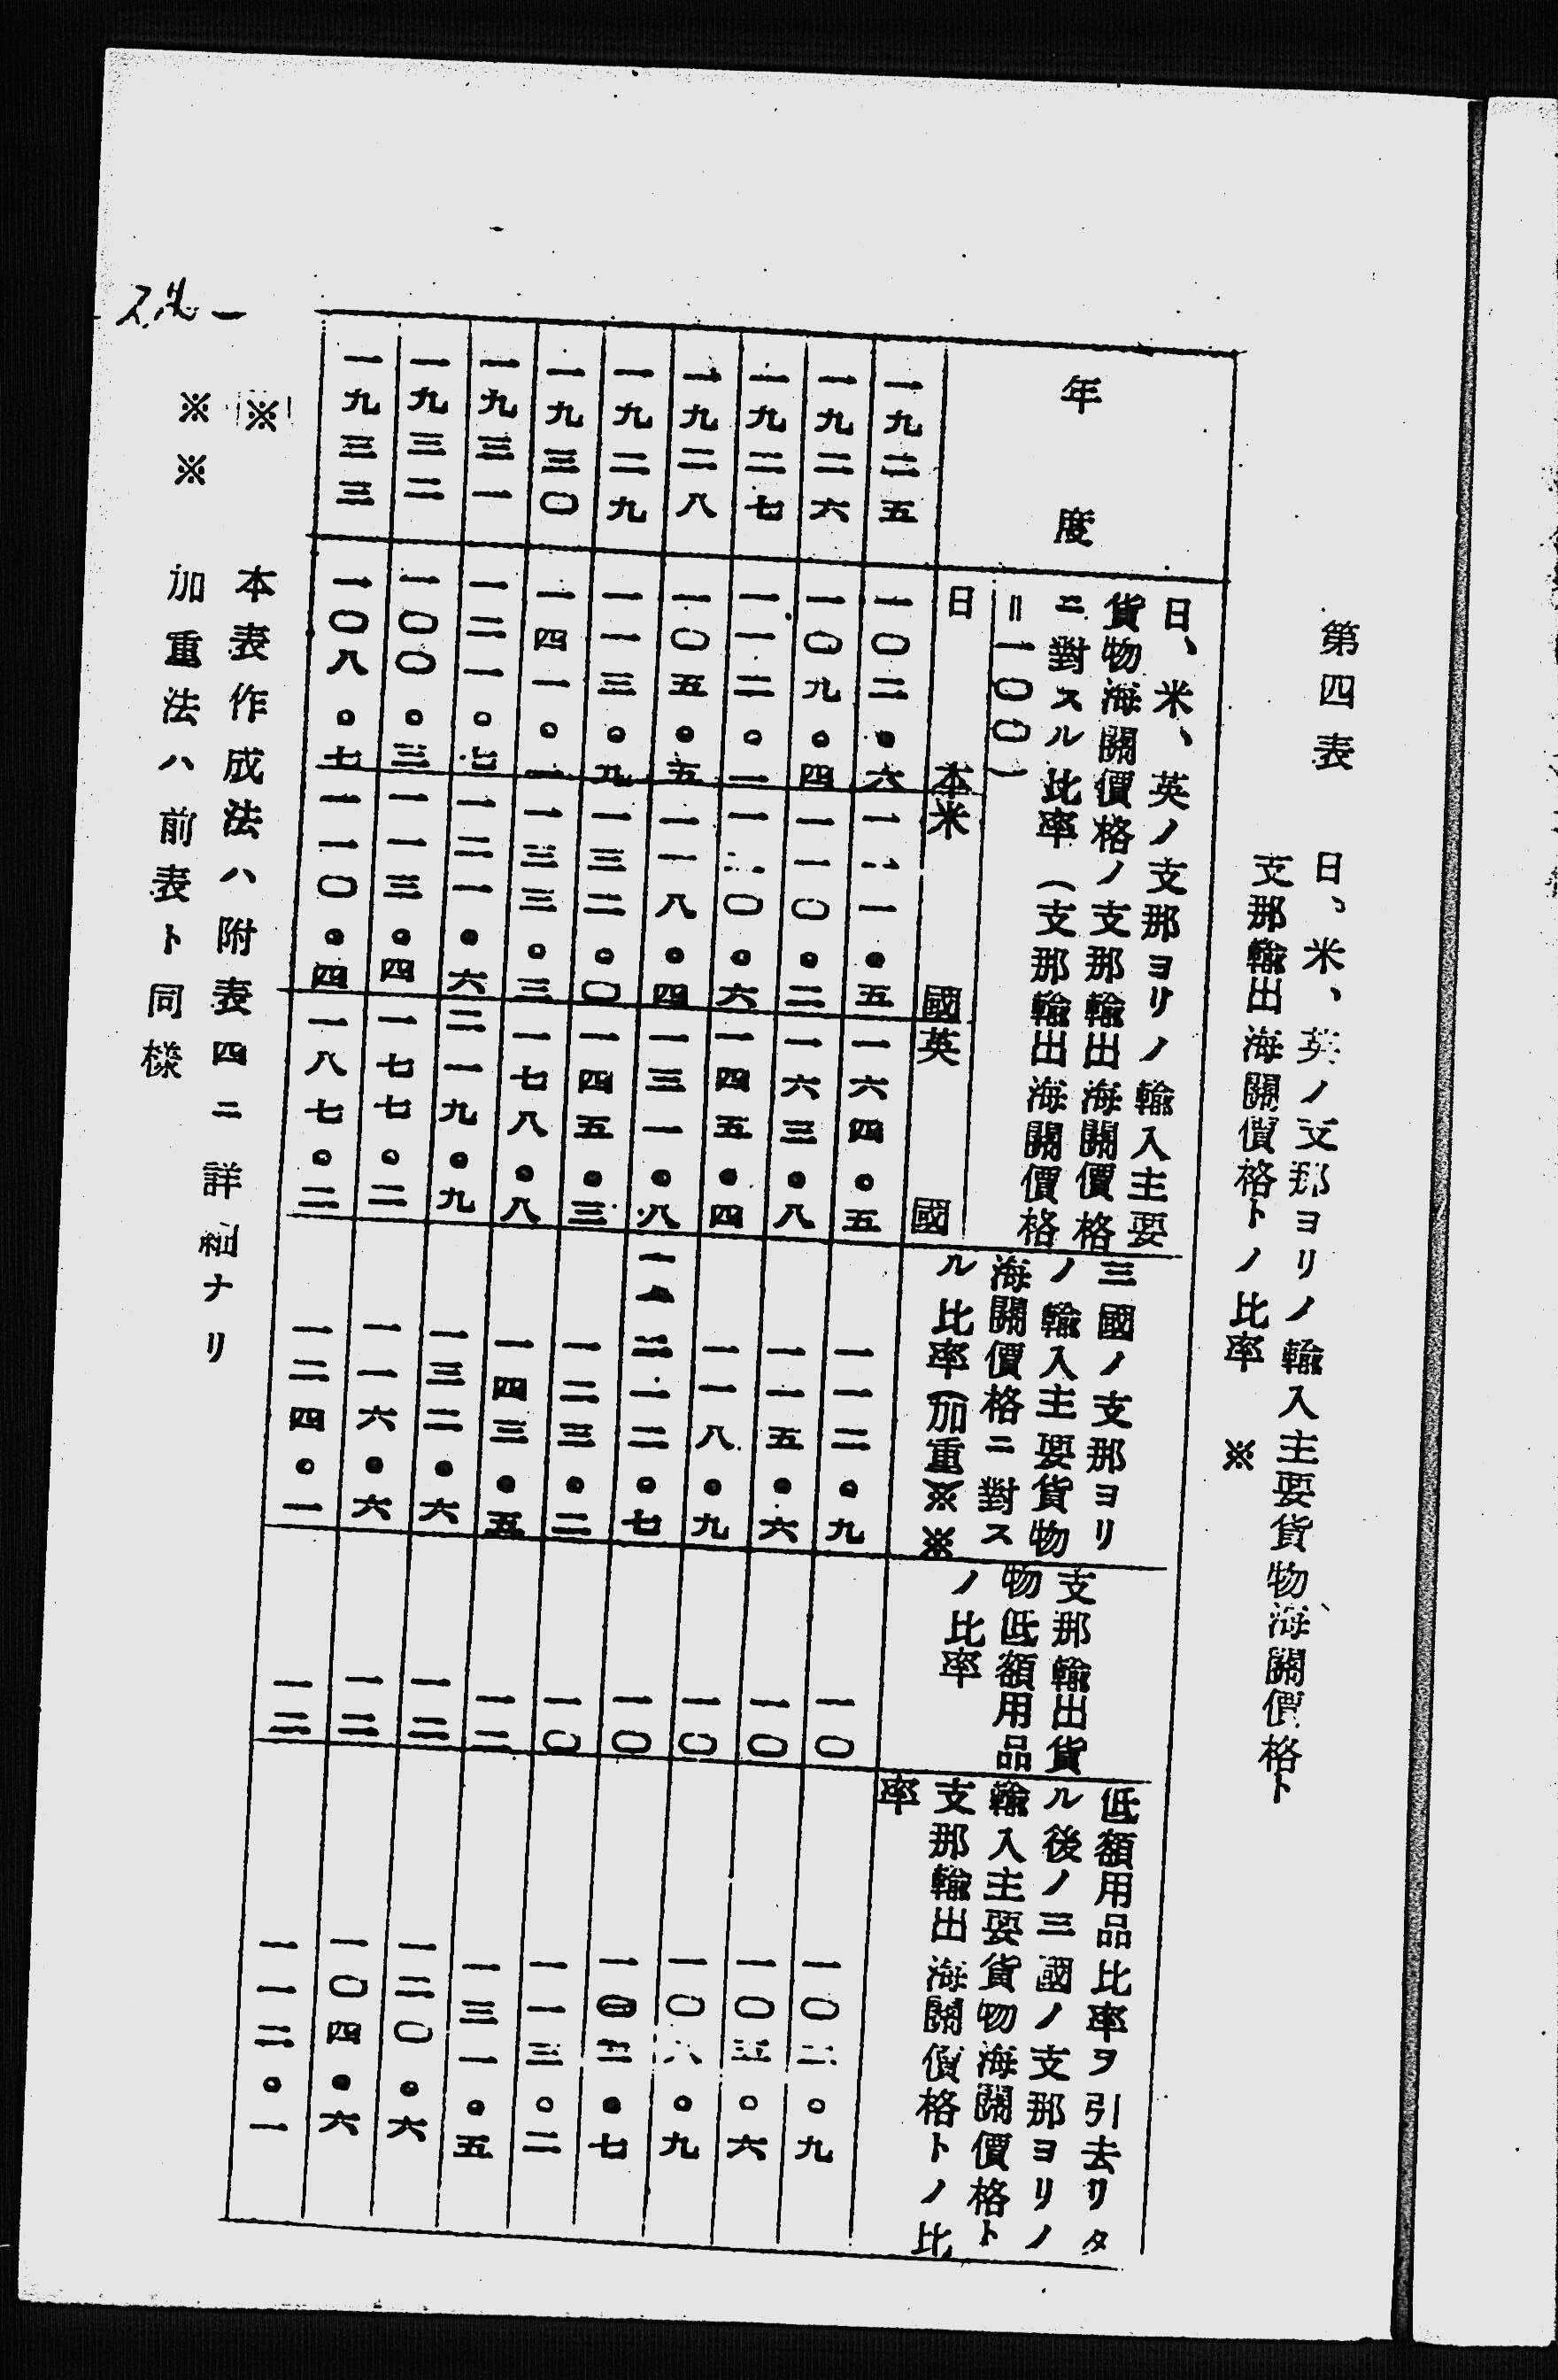 第四表
日、米、英ノ支那ヨリノ輸入主要貨物海關價格ト
支那輸出海關價格トノ比率 ※
年度
日、米、英ノ支那ヨリノ輸入主要
貨物海關價格ノ支那輸出海關價格
ニ對スル比率(支那輸出海關價格
=一〇〇)
日本
米國
英國
三國ノ支那ヨリ
ノ輸入主要貨物
海關價格ニ對ス
ル比率(加重)※※
支那輸出貨
物低額用品
ノ比率
低額用品比率ヲ引去リタ
ル後ノ三國ノ支那ヨリノ
輸入主要貨物海關價格ト
支那輸出海關價格トノ比
率
一九二五 一〇二。六 一一一。五 一六四。五 一一二。九 一〇 一〇二。九
一九二六 一〇九。四 一一〇。二 一六三。八 一一五。六 一〇 一〇五。六
一九二七 一一二。一 一二〇。六 一四五。四 一一八。九 一〇 一〇八。九
一九二八 一〇五。五 一一八。四 一三一。八 一一二。七 一〇 一〇二。七
一九二九 一一三。九 一三二。〇 一四五。三 一二三。二 一〇 一一三。二
一九三〇 一四一。一 一三三。三 一七八。八 一四三。五 一二 一三一。五
一九三一 一二一。七 一二一。六 二一九。九 一三二。六 一二 一二〇。六
一九三二 一〇〇。三 一一三。四 一七七。二 一一六。六 一二 一〇四。六
一九三三 一〇八。七 一一〇。四 一八七。二 一二四。一 一二 一一二。一
※ 本表作成法ハ附表四ニ詳細ナリ
※※ 加重法ハ前表ト同樣